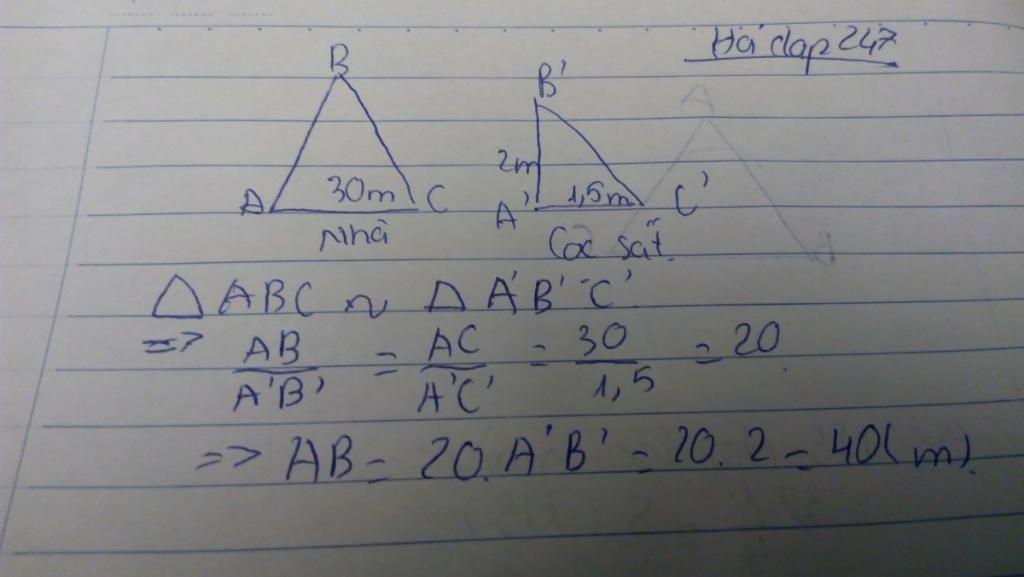 Hỏi đáp 247
B
B'
2m
A 30m C
A' 1,5m C'
Nhà
Cọc sắt.
△ABC ~ △A'B'C'
=> AB/A'B' = AC/A'C' = 30/1,5 = 20
=> AB = 20.A'B' = 20.2 = 40(m).